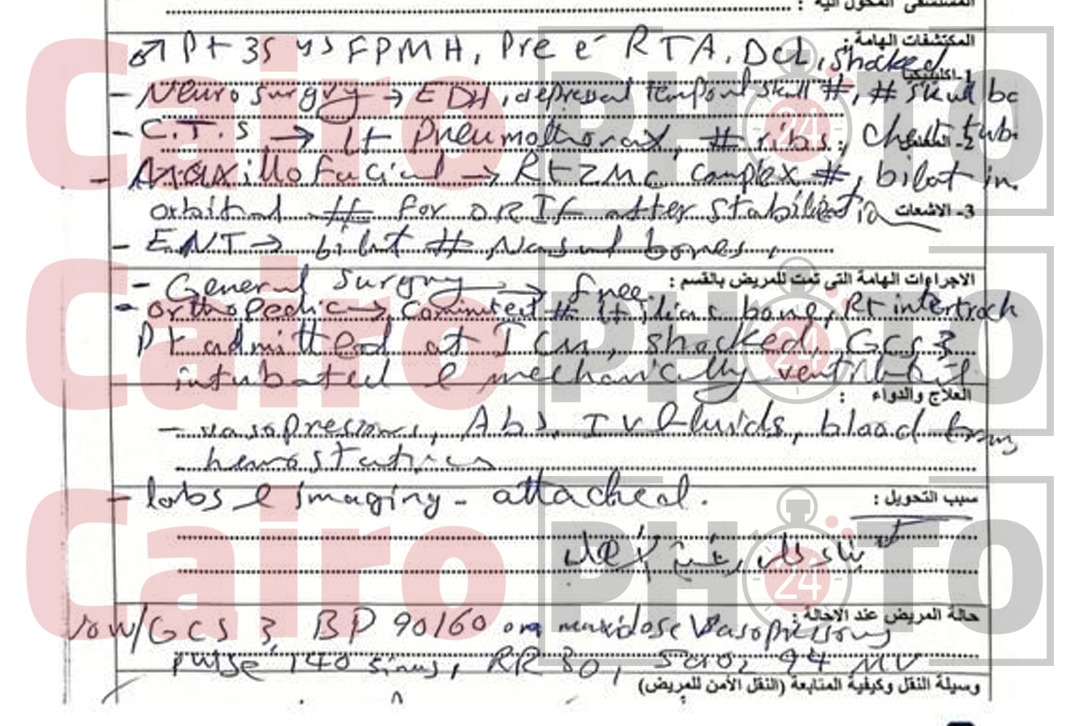 المستشفى المحول اليه :
المكتشفات الهامة :
♂ Pt 35 ys FPMH, Pre é RTA, DCL, shocked
1- اكلينيكيا
- Neurosurgry → EDH, depressed temporal skull #, # skull ba
- C.T.S → Lt Pneumothorax, # ribs, chest tub
2-
- Maxillofacial → Rt ZMC complex #, bilat in
orbital # for ORIF after stabilization
3- الاشعات
- ENT → bilat # Nasal bones,
الاجراءات الهامة التي تمت للمريض بالقسم :
- General surgry → free
- orthopedic → Comminuted # Lt iliac bone, Rt intertroch
Pt admitted at ICU, shocked, GCS 3
intubated & mechanically ventilated
العلاج والدواء :
- vasopressors, Abs, IV fluids, blood trans
hemostatics
- labs & imaging - attached.
سبب التحويل :
بناء على رغبة الأهل
حالة المريض عند الاحالة :
now/GCS 3, BP 90/60 on maxidose Vasopressors
pulse 140 sinus, RR 30, SaO2 94 MV
وسيلة النقل وكيفية المتابعة (النقل الأمن للمريض)
Cairo PHOTO 24
Cairo PHOTO 24
Cairo PHOTO 24